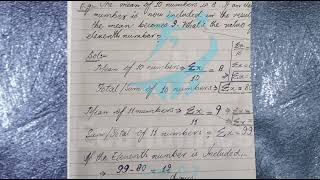 E.g:- The mean of 10 numbers is 8. If an
number is now included in the result
the mean becomes 9. What is the value
eleventh number?
Sol:-
Mean of 10 numbers ⇒ Σx/10 = 8
Total/Sum of 10 numbers ⇒ Σx = 80
Mean of 11 numbers ⇒ Σx/11 = 9
Sum/Total of 11 numbers ⇒ Σx = 99
If the Eleventh number is Included,
⇒ 99-80 = 19